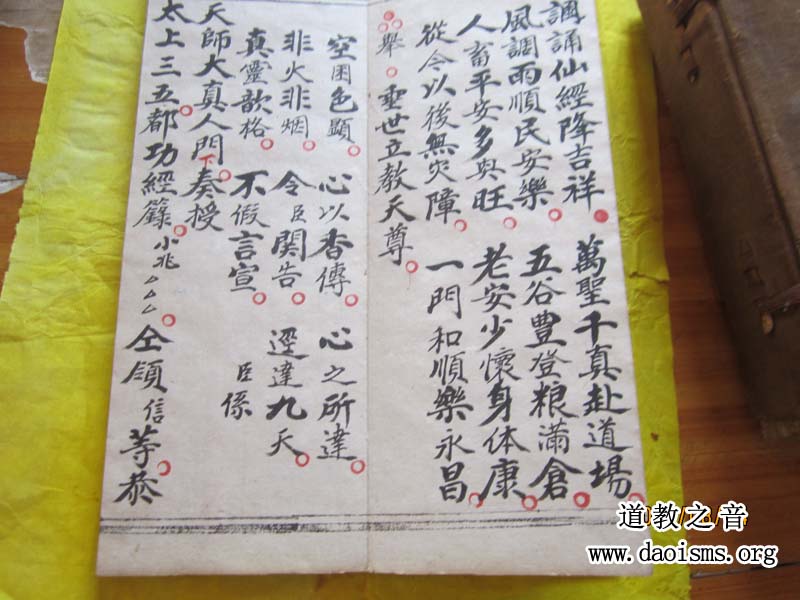 調誦仙經降吉祥 萬聖千真赴道場
風調雨順民安樂 五谷豊登粮滿倉
人畜平安多興旺 老安少懷身体康
從今以後無灾障 一門和順樂永昌
舉 垂世立教天尊
空因色顯 心以香傳 心之所達
非火非烟 令臣関告 逕達九天
真靈歆格 不假言宣 臣係
天師大真人門下奏授
太上三五都功經籙 小兆△△△ 仝領信等恭
道教之音
www.daoisms.org